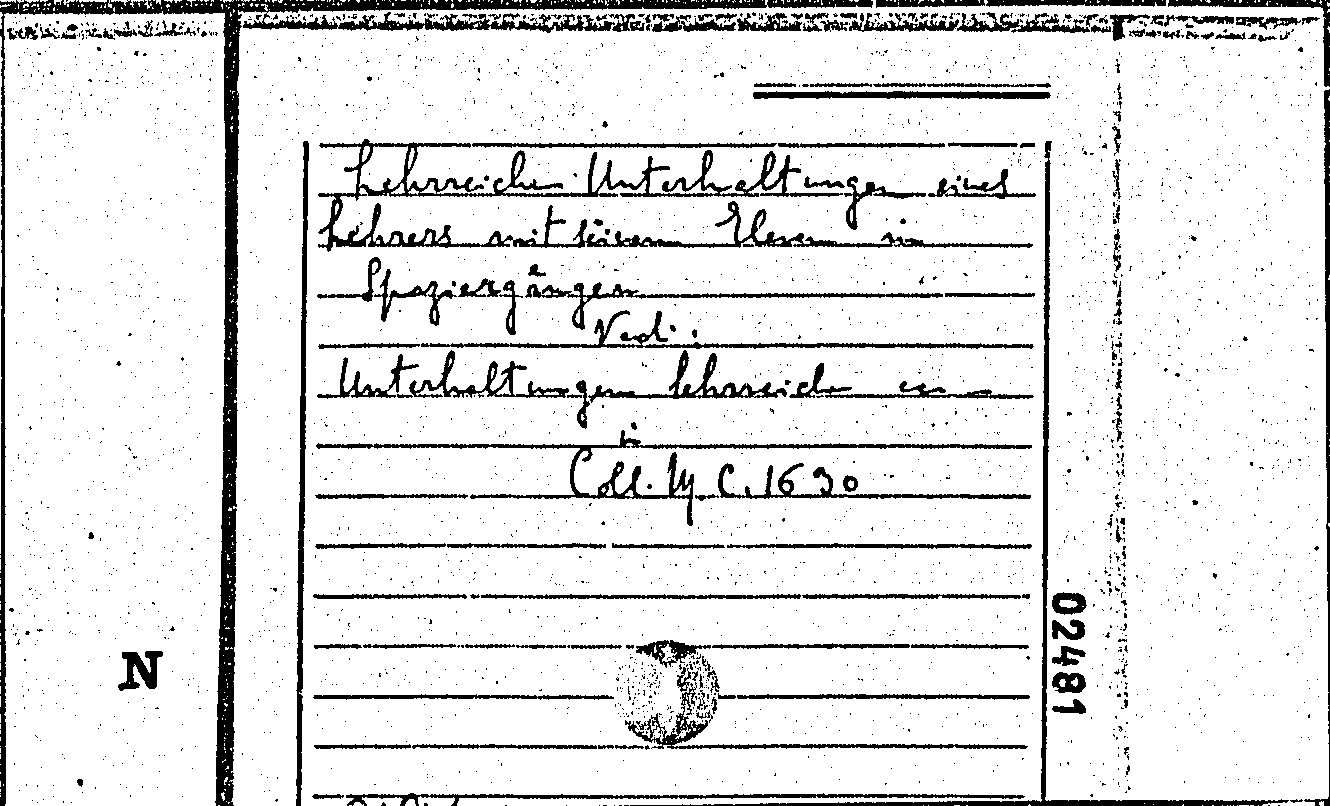 Lehrreiche Unterhaltungen eines
Lehrers mit seinem Eleven in
Spaziergängen
Vedi:
Unterhaltungen lehrreiche
in
Coll. M. C. 1690
02481
N